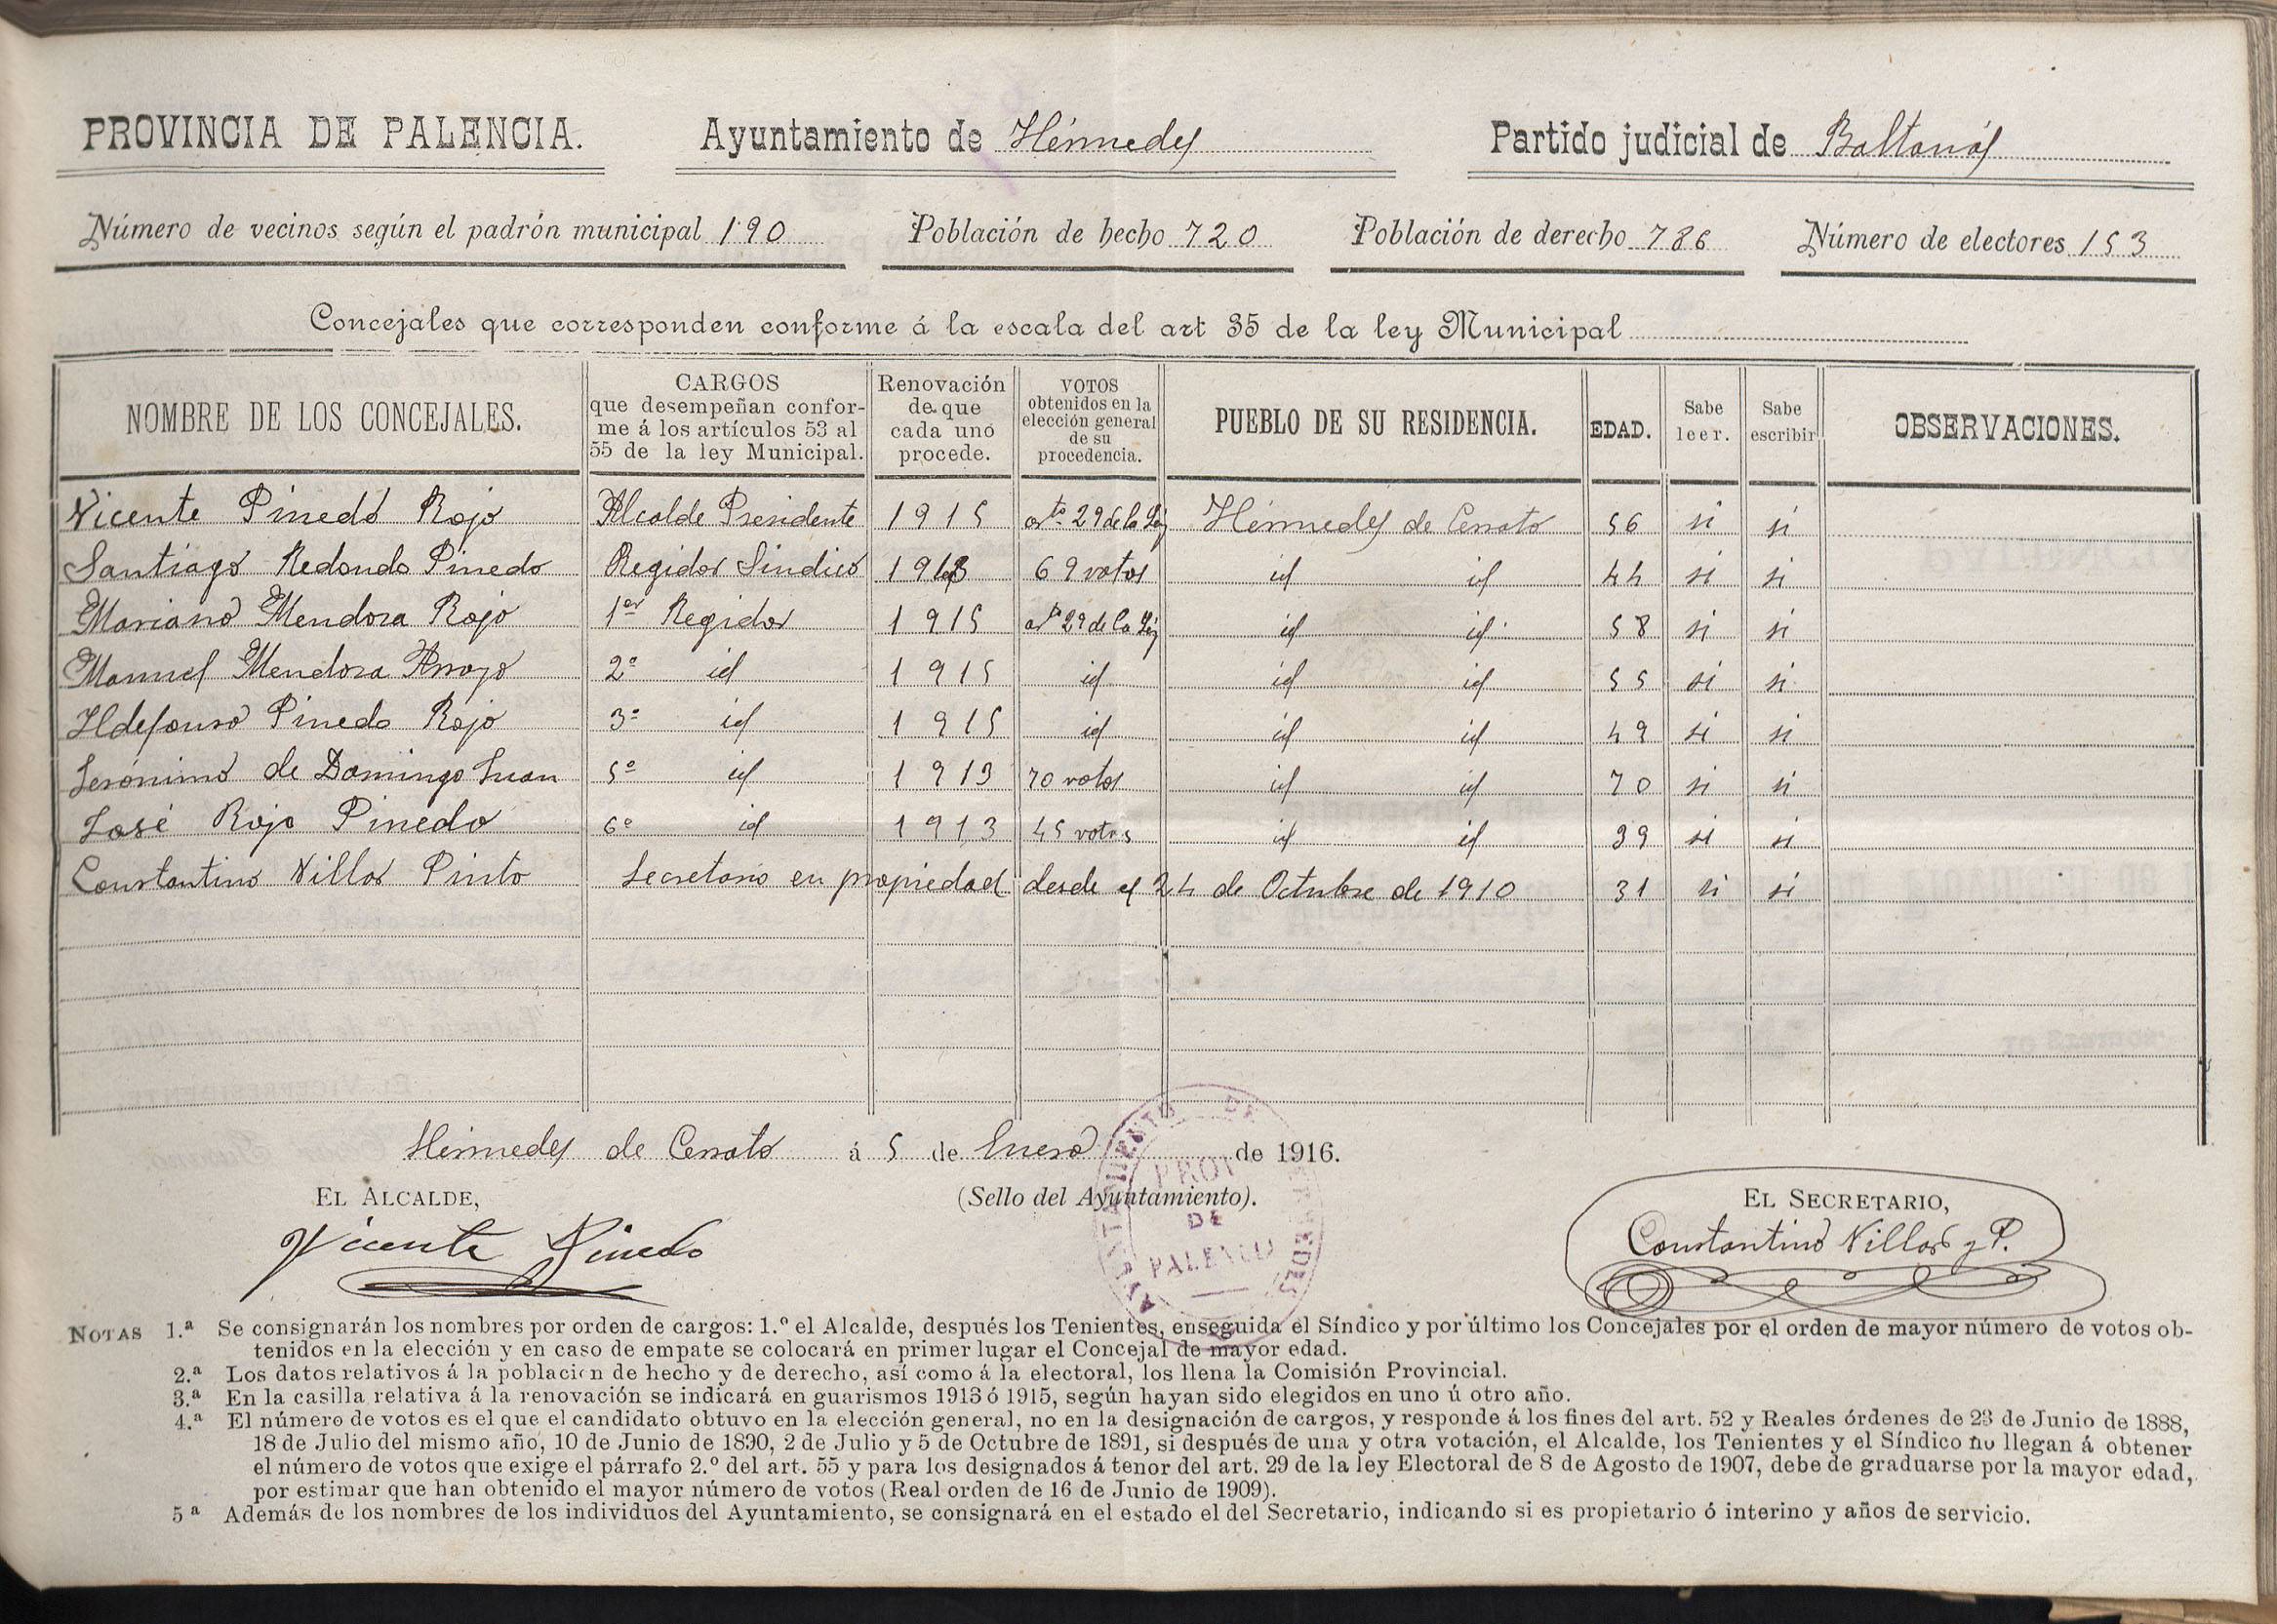 PROVINCIA DE PALENCIA. Ayuntamiento de Hérmedes Partido judicial de Baltanás
Número de vecinos según el padrón municipal 190 Población de hecho 720 Población de derecho 786 Número de electores 153
Concejales que corresponden conforme á la escala del art 35 de la ley Municipal
NOMBRE DE LOS CONCEJALES. CARGOS que desempeñan conforme á los artículos 53 al 55 de la ley Municipal. Renovación de que cada uno procede. VOTOS obtenidos en la elección general de su procedencia. PUEBLO DE SU RESIDENCIA. EDAD. Sabe leer. Sabe escribir OBSERVACIONES.
Vicente Pinedo Rojo Alcalde Presidente 1915 arto. 29 de la Ley Hérmedes de Cerrato 56 si si
Santiago Redondo Pinedo Regidor Sindico 1913 69 votos id id 44 si si
Mariano Mendoza Rojo 1er Regidor 1915 arto 29 de la Ley id id 58 si si
Manuel Mendoza Arroyo 2º id 1915 id id id 55 si si
Ildefonso Pinedo Rojo 3º id 1915 id id id 49 si si
Jerónimo de Domingo Juan 5º id 1913 70 votos id id 70 si si
José Rojo Pinedo 6º id 1913 45 votos id id 39 si si
Constantino Villar Pinto Secretario en propiedad desde el 24 de Octubre de 1910 31 si si
Hérmedes de Cerrato á 5 de Enero de 1916.
EL ALCALDE, (Sello del Ayuntamiento). EL SECRETARIO,
Vicente Pinedo Constantino Villar y P.
AYUNTAMIENTO DE HERMEDES
PROV
DE
PALENCIA
NOTAS 1.ª Se consignarán los nombres por orden de cargos: 1.º el Alcalde, después los Tenientes, enseguida el Síndico y por último los Concejales por el orden de mayor número de votos ob-
tenidos en la elección y en caso de empate se colocará en primer lugar el Concejal de mayor edad.
2.ª Los datos relativos á la población de hecho y de derecho, así como á la electoral, los llena la Comisión Provincial.
3.ª En la casilla relativa á la renovación se indicará en guarismos 1913 ó 1915, según hayan sido elegidos en uno ú otro año.
4.ª El número de votos es el que el candidato obtuvo en la elección general, no en la designación de cargos, y responde á los fines del art. 52 y Reales órdenes de 23 de Junio de 1888,
18 de Julio del mismo año, 10 de Junio de 1890, 2 de Julio y 5 de Octubre de 1891, si después de una y otra votación, el Alcalde, los Tenientes y el Síndico no llegan á obtener
el número de votos que exige el párrafo 2.º del art. 55 y para los designados á tenor del art. 29 de la ley Electoral de 8 de Agosto de 1907, debe de graduarse por la mayor edad,
por estimar que han obtenido el mayor número de votos (Real orden de 16 de Junio de 1909).
5ª Además de los nombres de los individuos del Ayuntamiento, se consignará en el estado el del Secretario, indicando si es propietario ó interino y años de servicio.